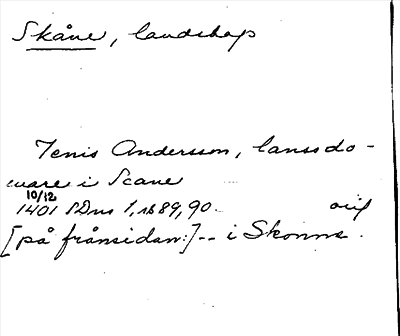 Skåne, landskap
Jenis Andersson, lanssdo-
mare i Scane
10/12
1401 SDns 1, s 89, 90. orig
[på frånsidan:] -- i Skonne.